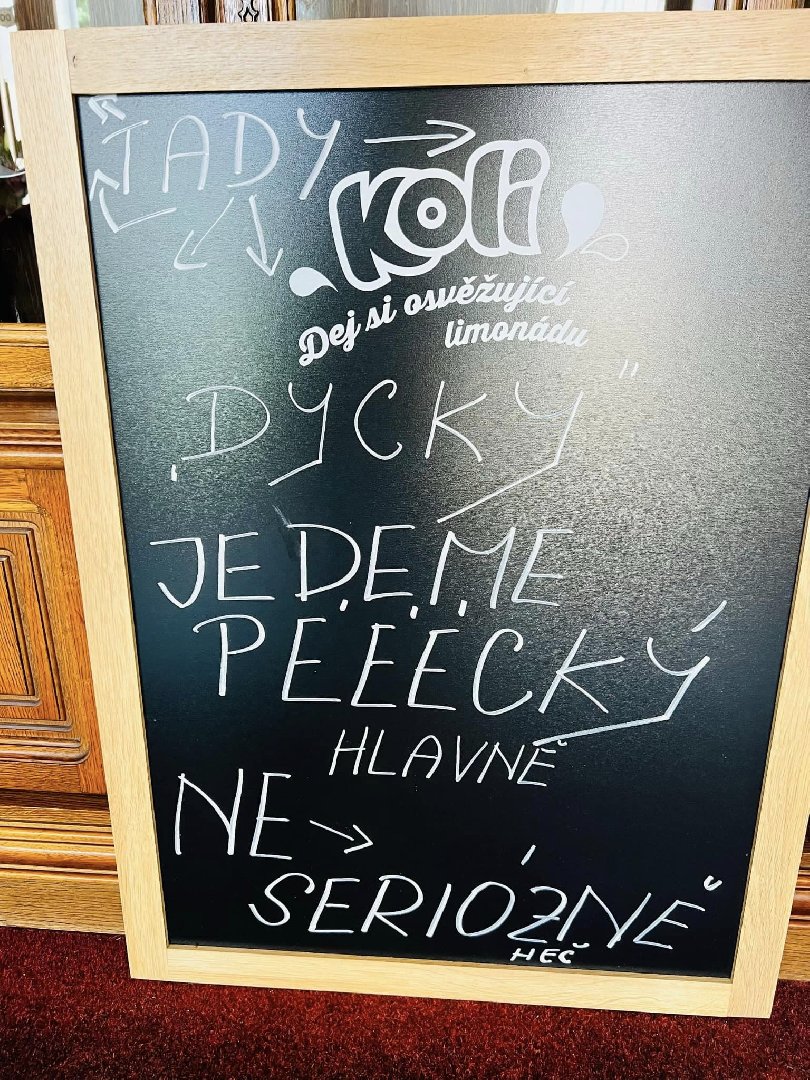 ŤADY →
Koli
Dej si osvěžující
limonádu
„DYCKY"
JEDEME
PÉÉÉCKÝ
HLAVNĚ
NE →
SERIÓZNĚ
HEČ